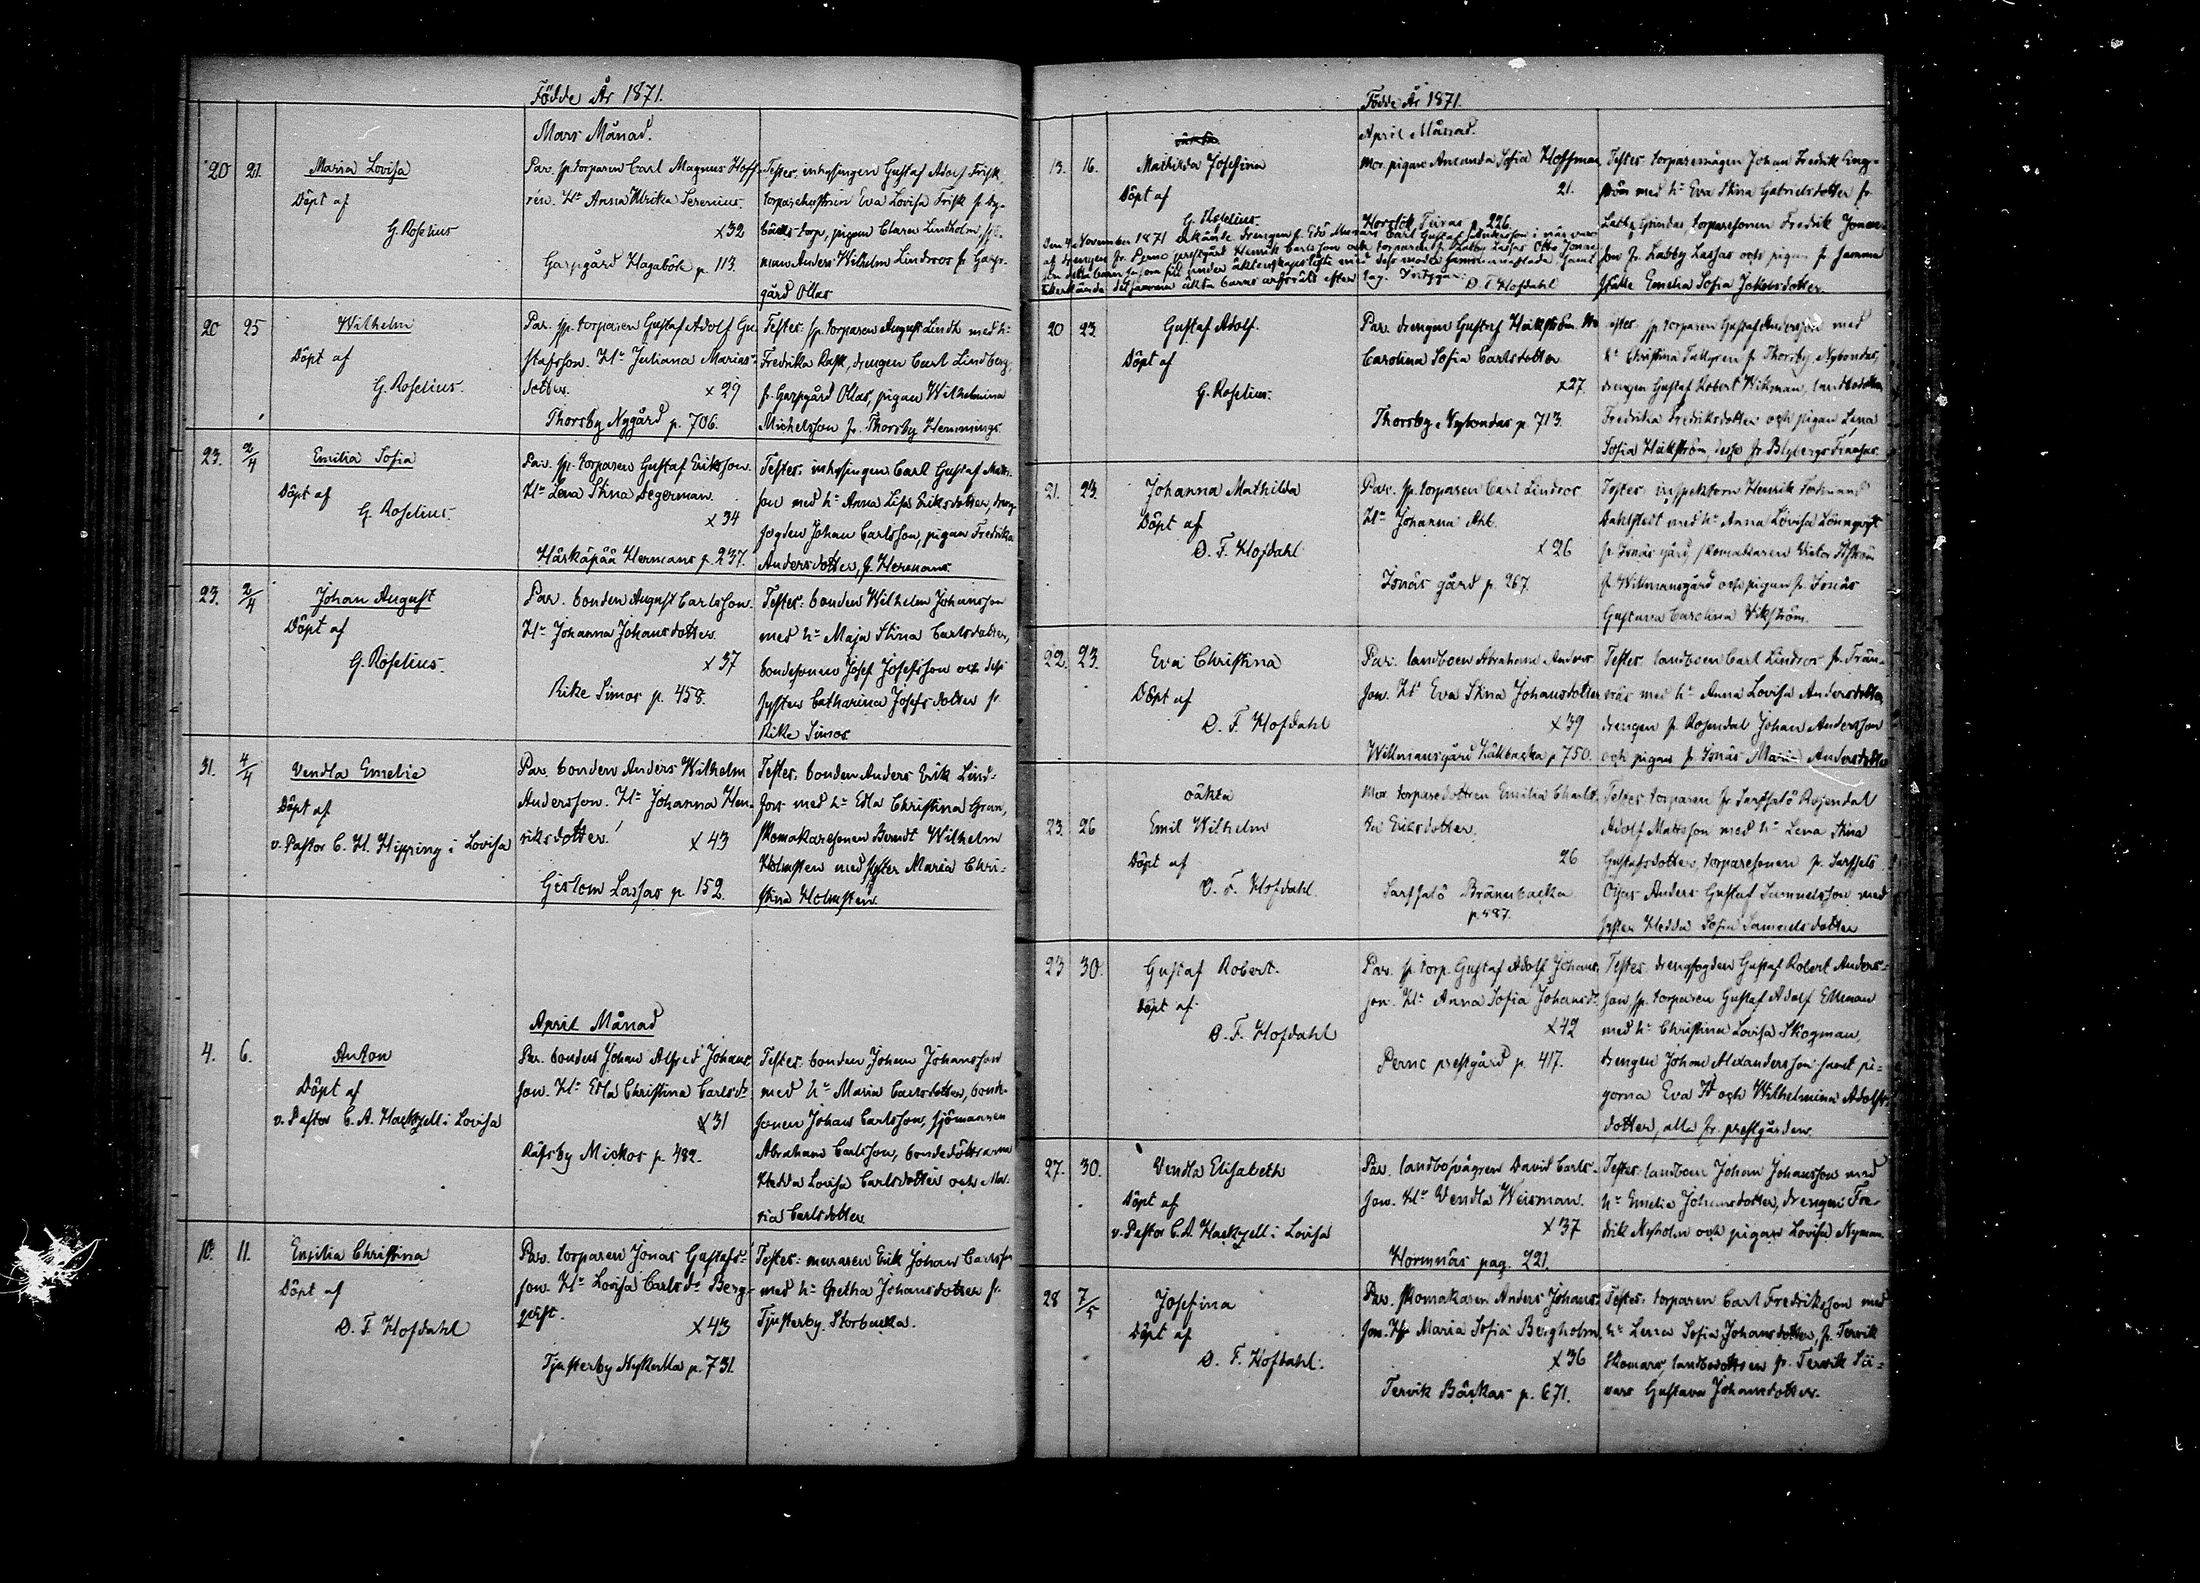 Födde År 1871.
Mars Månad.
20 21. Maria Lovisa
Döpt af
G. Roselius
Par. sp. torparen Carl Magnus Hoff-
rén. H:u Anna Ulrika Serenius
x 32
Garpgård Hagaböle p. 113.
Testes: inhysingen Gustaf Adolf Frisk,
torparehustrun Eva Lovisa Frisk fr.
torp, pigan Clara Lindholm,
Anders Wilhelm Lindroos fr. Garp-
gård Ollas
20 25 Wilhelm
Döpt af
G. Roselius
Par. sp. torparen Gustaf Adolf Gu-
stafsson. H:u Juliana Marias-
dotter.
x 29
Thorsby Nygård p. 706.
Testes: sp. torparen August Lindh med h:u
Fredrika Rask, drengen Carl Lindberg,
fr. Garpgård Ollas, pigan Wilhelmina
Michelsson fr. Thorsby Hemmings
23. 2/4 Emilia Sofia
Döpt af
G. Roselius.
Par. sp. torparen Gustaf Eriksson.
H:u Lena Stina Degerman.
x 34
Härkäpää Hermans p. 237.
Testes: inhysingen Carl Gustaf Matts-
son med h:u Anna Lisa Eriksdotter, dreng-
fogden Johan Carlsson, pigan Fredrika
Andersdotter, fr. Hermans
23. 2/4 Johan August
Döpt af
G. Roselius
Par. bonden August Carlsson.
H:u Johanna Johansdotter
x 37
Rike Simos p. 458.
Testes: bonden Wilhelm Johansson
med h:u Maja Stina Carlsdotter,
bondesonen Josef Josefsson och dess
syster Catharina Josefsdotter fr.
Rike Simos
31. 4/4 Vendla Emelie
Döpt af
v. Pastor C. H. Hipping i Lovisa
Par. bonden Anders Wilhelm
Andersson. H:u Johanna Hen-
riksdotter.
x 43
Gislom Lassas p. 152.
Testes: bonden Anders Erik Lind-
fors med h:u Edla Christina Gran,
skomakaresonen Berndt Wilhelm
Holmsten med syster Maria Chri-
stina Holmstén
April Månad
4. 6. Anton
Döpt af
v. Pastor C. A. Hackzell i Lovisa
Par. bonden Johan Alfred Johans-
son. H:u Edla Christina Carlsdr
x 31
Räfsby Mickos p. 482.
Testes: bonden Johan Johansson
med h:u Maria Carlsdotter, bonde-
sonen Johan Carlsson, sjömannen
Abraham Carlsson, bondedöttrarna
Hedda Lovisa Carlsdotter och Ma-
ria Carlsdotter
10. 11. Emilia Christina
Döpt af
O. F. Hofdahl
Par. torparen Jonas Gustafs-
son. H:u Lovisa Carlsdr Berg-
qvist.
x 43
Tjusterby Nykulla p. 731.
Testes: muraren Erik Johan Carlsson
med h:u Gretha Johansdotter fr.
Tjusterby Storbacka.
Födde År 1871.
April Månad.
13. 16. Mathilda Josefina
Döpt af
G. Roselius
Mor. pigan Amanda Sofia Hoffman
21.
Horslök Tuiras p. 226.
Den 4 November 1871 erkände drengen Carl Gustaf Andersson i när varo
af drengen fr. Perno prestgård Henrik Carlsson och torparen fr. Labby Lassas Otto Jonas-
son detta barn såsom sitt under äktenskapslöfte med dess moder sammanaflade samt
tillerkände det samma äkta barns arfsrätt efter sig. Intygar: O. F. Hofdahl
Testes: torparemågen Johan Fredrik Eng-
ström med h:u Eva Stina Gabrielsdotter fr.
Labby Grindas, torparesonen Fredrik Jonas-
son fr. Labby Lassas och pigan fr. samma
ställe Emelia Sofia Jakobsdotter
20 23. Gustaf Adolf.
Döpt af
G. Roselius.
Par. drengen Gustaf Häkström. H:u
Carolina Sofia Carlsdotter
x 27.
Thorsby Nybondas p. 713.
Testes: sp. torparen Gustaf Andersson med
h:u Christina Tallgren fr. Thorsby Nybondas,
drengen Gustaf Robert Wikman, landbodottern
Fredrika Fredriksdotter och pigan Lena
Sofia Häkström, desse fr. Blybergs
21. 23. Johanna Mathilda
Döpt af
O. F. Hofdahl
Par. sp. torparen Carl Lindroos
H:u Johanna Ahl.
x 26
Isnäs gård p. 267.
Testes: inspektorn Henrik Ferdinand
Dahlstedt med h:u Anna Lovisa Lönnqvist
fr. Isnäs gård, skomakaren Victor Åström
fr. Willmansgård och pigan fr. Isnäs
Gustava Carolina Vikström.
22. 23. Eva Christina
Döpt af
O. F. Hofdahl
Par. landboen Abraham Anders-
son. H:u Eva Stina Johansdotter
x 39
Willmansgård Källbacka p. 750.
Testes: landboen Carl Lindroos fr. Frän-
träs med h:u Anna Lovisa Andersdotter,
drengen fr. Rosendal Johan Andersson
och pigan fr. Isnäs Maria Andersdotter
23. 26 oäkta
Emil Wilhelm
Döpt af
O. F. Hofdahl
Mor. torparedottren Emilia Charlot-
ta Eriksdotter
26
Sarfsalö Brännbacka
p. 587.
Testes: torparen fr. Sarfsalö Rosendal
Adolf Mattsson med h:u Lena Stina
Gustafsdotter, torparesonen fr. Sarfsalö
Öijas Anders Gustaf Samuelsson med
syster Hedda Sofia Samuelsdotter
23 30. Gustaf Robert.
Döpt af
O. F. Hofdahl
Par. sp. torp. Gustaf Adolf Johans-
son. H:u Anna Sofia Johansdr
x 42
Perno prestgård p. 417.
Testes: drengfogden Gustaf Robert Anders-
son, sp. torparen Gustaf Adolf Ekman
med h:u Christina Lovisa Skogman,
drengen Johan Alexandersson samt pi-
gorna Eva H och Wilhelmina Adolfs-
dotter, alla fr. prestgården.
27. 30. Vendla Elisabeth
Döpt af
v. Pastor C. A. Hackzell i Lovisa
Par. landbosvågren David Carls-
son. H:u Vendla Weisman.
x 37
Hormnäs pag. 221.
Testes: landboen Johan Johansson med
h:u Emelia Johansdotter, drengen Fre-
drik Nyholm och pigan Lovisa Nyman.
28 7/5 Josefina
Döpt af
O. F. Hofdahl.
Par. skomakaren Anders Johans-
son. H:u Maria Sofia Bergholm
x 36
Tervik Bäckas p. 671.
Testes: torparen Carl Fredriksson med
h:u Lena Sofia Johansdotter, fr. Tervik
Skomars, landbodottren fr. Tervik Sii-
vars Gustava Johansdotter.